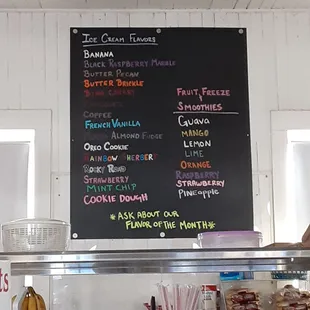 Ice Cream Flavors
Banana
Black Raspberry Marble
Butter Pecan
Butter Brickle
Coffee
French Vanilla
Almond Fudge
Oreo Cookie
Rainbow Sherbert
Rocky Road
Strawberry
Mint Chip
Cookie Dough
Fruit Freeze
Smoothies
Guava
Mango
Lemon
Lime
Orange
Raspberry
Strawberry
Pineapple
*Ask About Our
Flavor of the Month*